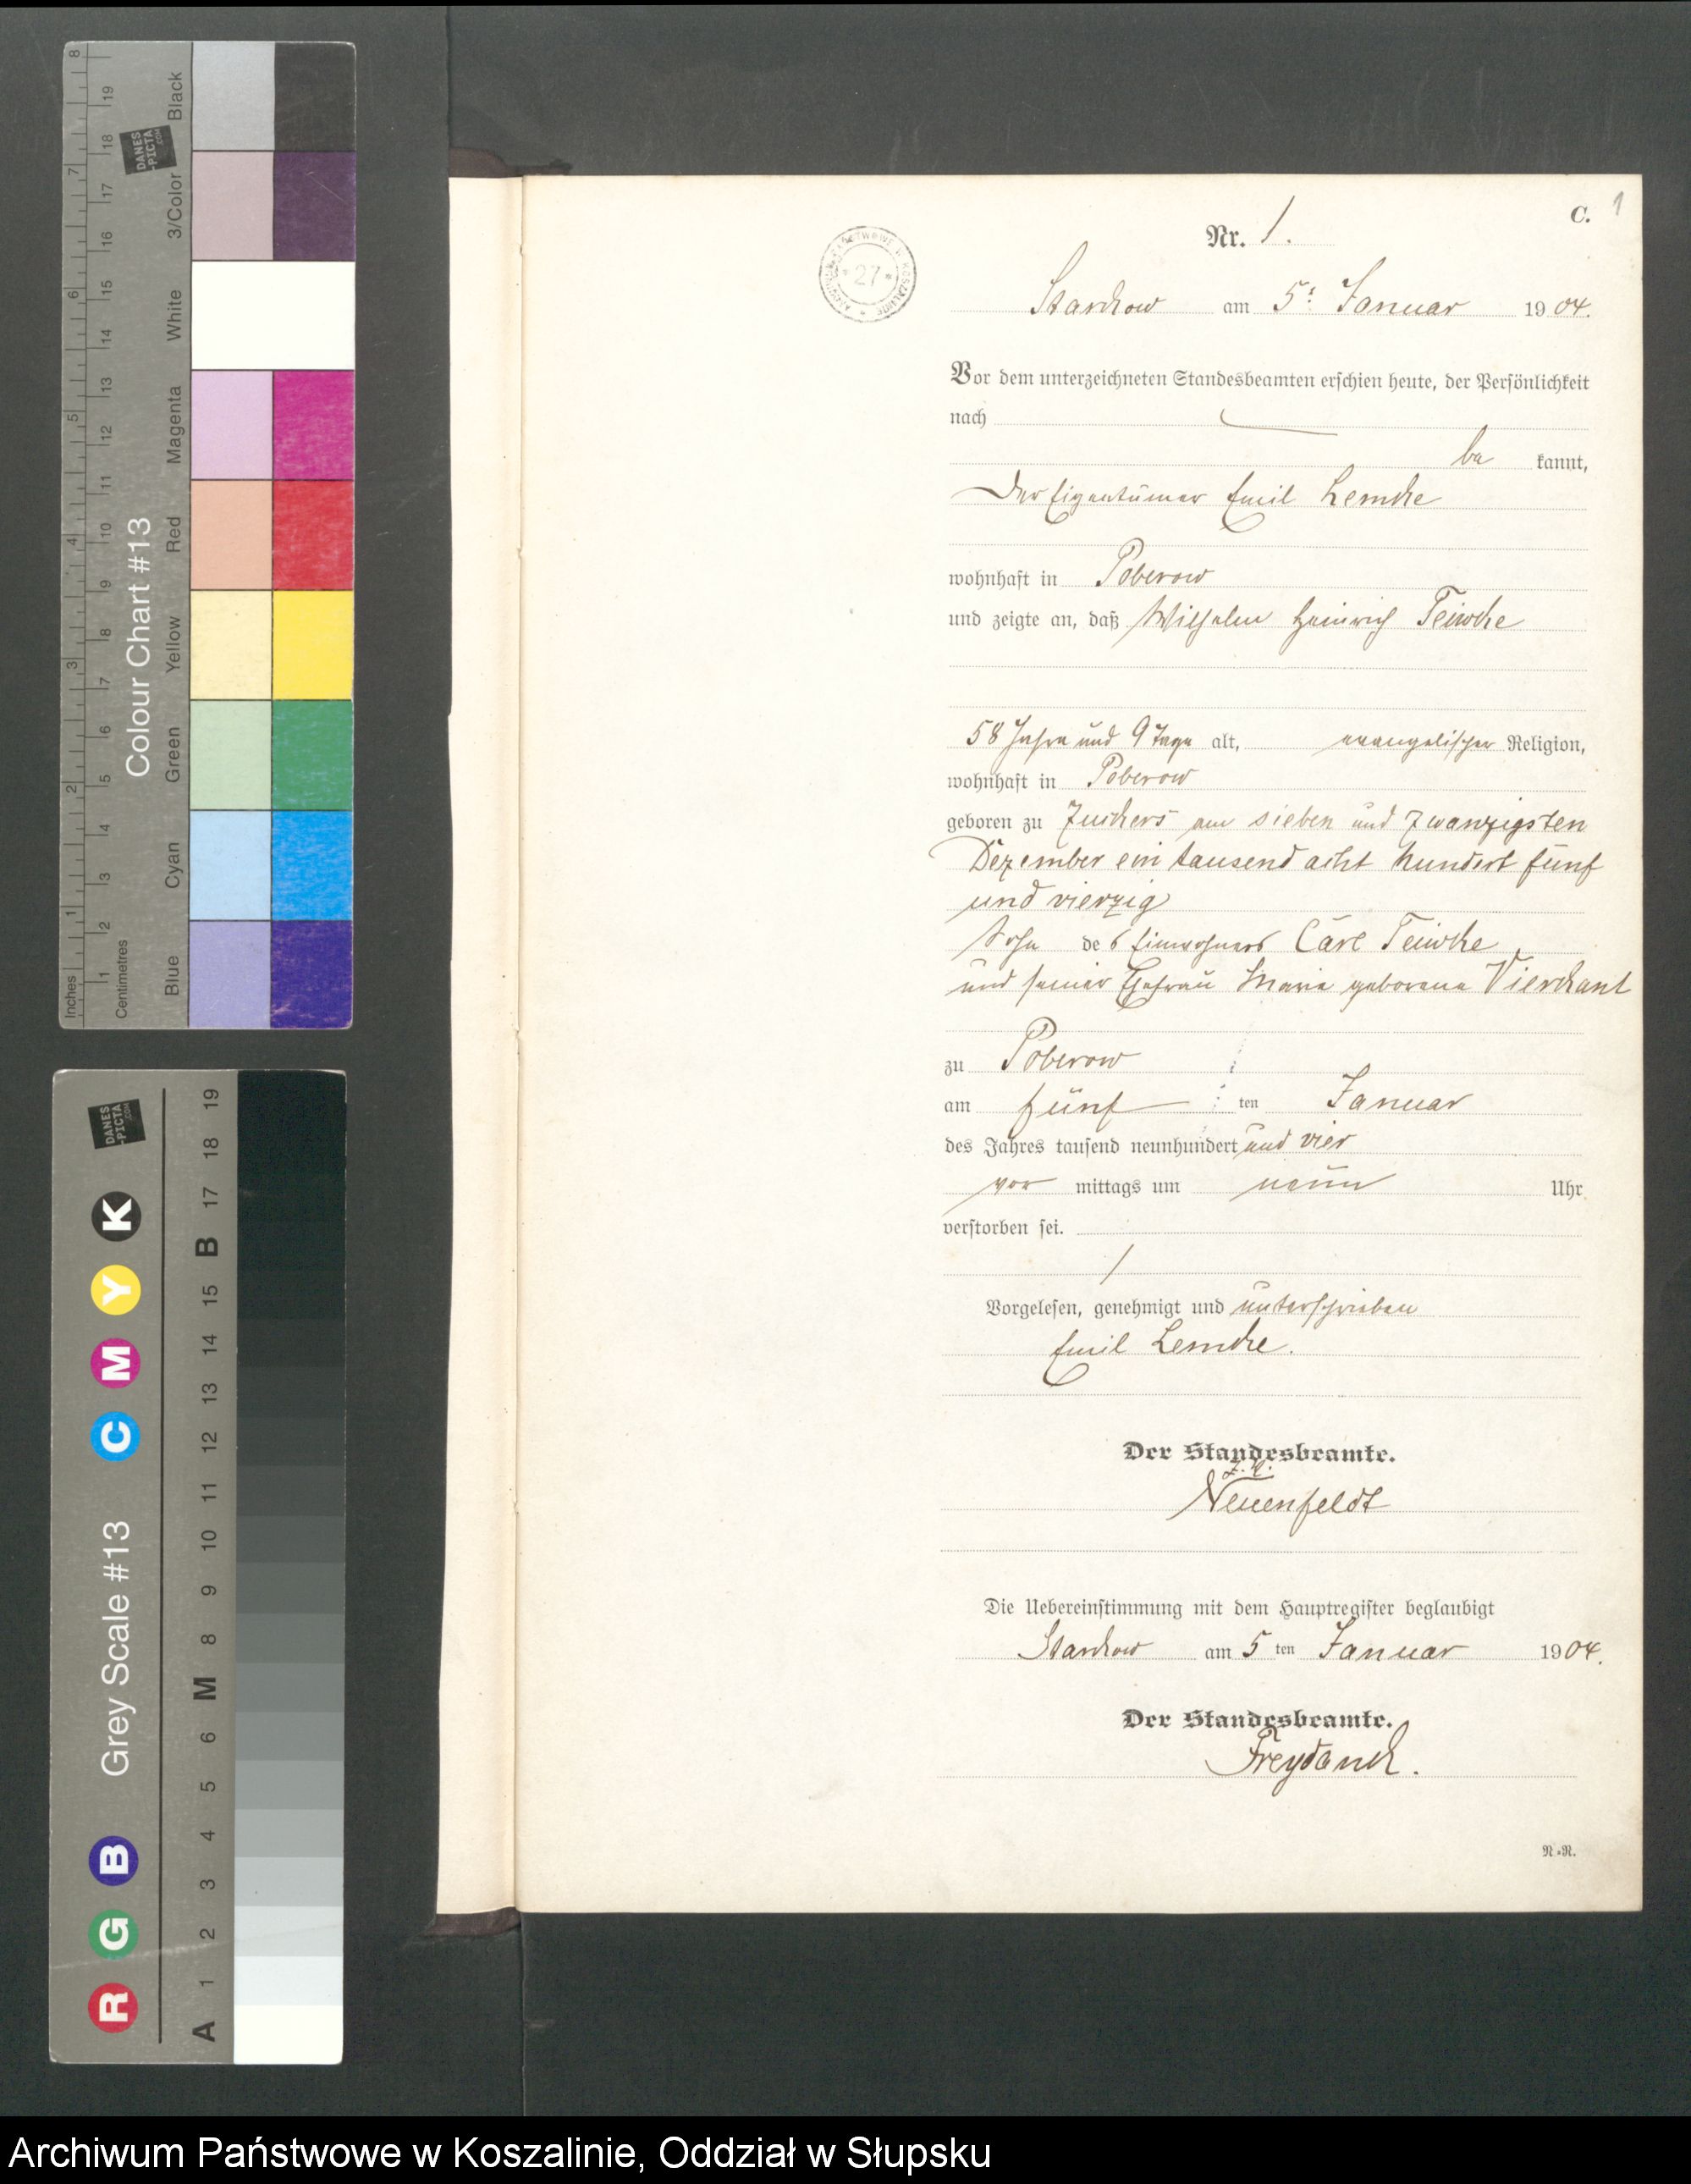 C. 1
Nr. 1.
Starckow am 5t Januar 1904.
Vor dem unterzeichneten Standesbeamten erschien heute, der Persönlichkeit
nach
be kannt,
Der Eigentümer Emil Lemcke
wohnhaft in Poberow
und zeigte an, daß Wilhelm Heinrich Teiwcke
58 Jahre und 9 Tage alt, evangelischer Religion,
wohnhaft in Poberow
geboren zu Zuckers am sieben und zwanzigsten
Dezember ein tausend acht hundert fünf
und vierzig
Sohn des Einwohners Carl Teiwcke
und seiner Ehefrau Maria geborene Vierckant
zu Poberow
am fünf ten Januar
des Jahres tausend neunhundert und vier
vor mittags um neun Uhr
verstorben sei.
Vorgelesen, genehmigt und unterschrieben
Emil Lemcke.
Der Standesbeamte.
Neuenfeldt
Die Uebereinstimmung mit dem Hauptregister beglaubigt
Starckow am 5 ten Januar 1904.
Der Standesbeamte.
Freydanck.
N.N.
27
Inches
Centimetres
Colour Chart #13
Blue Cyan Green Yellow Red Magenta White 3/Color Black
DANES
-PICTA
.COM
Grey Scale #13
R G B C M Y K
A 1 2 3 4 5 6 M 8 9 10 11 12 13 14 15 B 17 18 19
DANES
-PICTA
.COM
Archiwum Państwowe w Koszalinie, Oddział w Słupsku